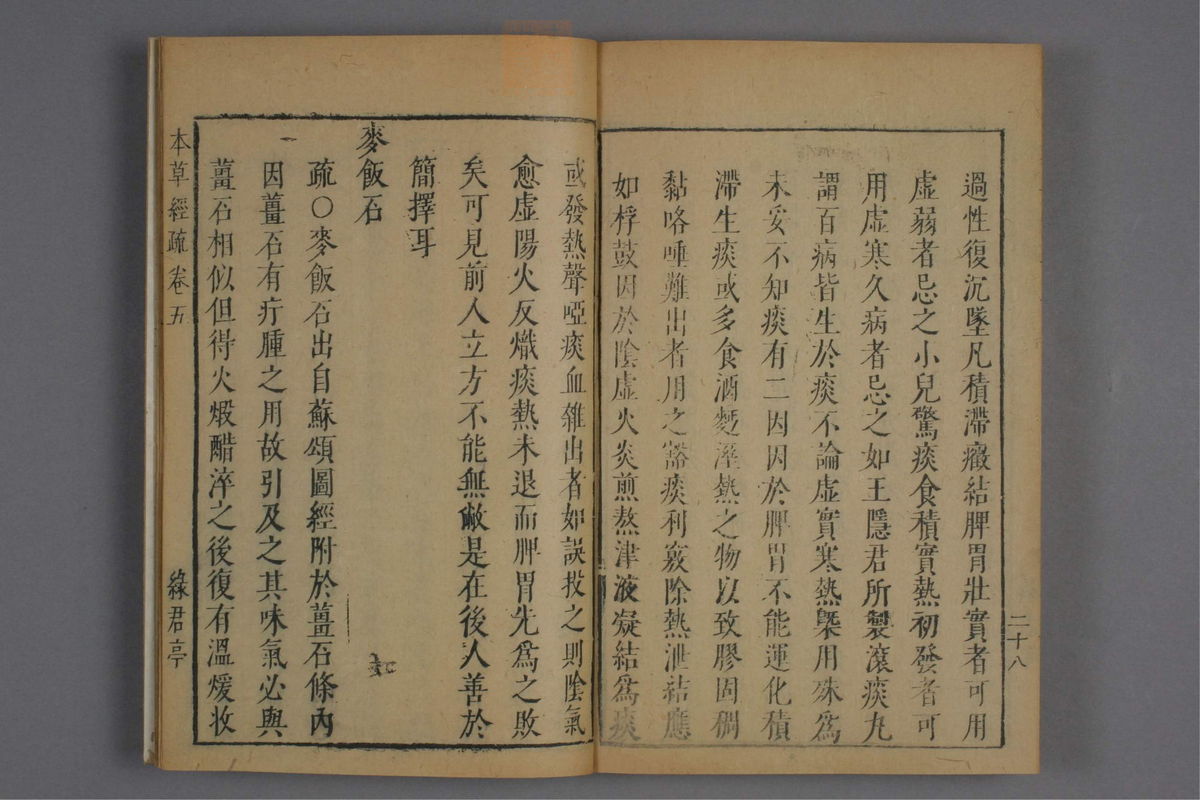 過性復沉墜凡積滯癥結脾胃壯實者可用
虛弱者忌之小兒驚痰食積實熱初發者可
用虛寒久病者忌之如王隱君所製滾痰丸
謂百病皆生於痰不論虛實寒熱槩用殊為
未妥不知痰有二因因於脾胃不能運化積
滯生痰或多食酒麪溼熱之物以致膠固稠
黏咯唾難出者用之豁痰利竅除熱泄結應
如桴鼓因於陰虛火炎煎熬津液凝結為痰
二十八
或發熱聲啞痰血雜出者如誤投之則陰氣
愈虛陽火反熾痰熱未退而脾胃先為之敗
矣可見前人立方不能無敝是在後人善於
簡擇耳
麥飯石
疏○麥飯石出自蘇頌圖經附於薑石條內
因薑石有疔腫之用故引及之其味氣必與
薑石相似但得火煅醋淬之後復有溫煖收
本草經疏 卷五 綠君亭